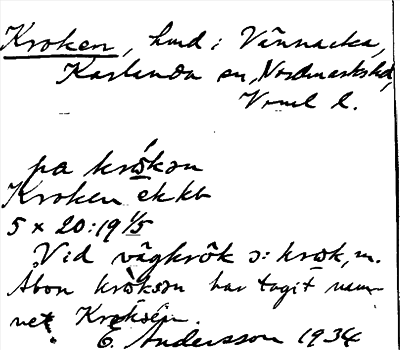 Kroken, hmd i Vännacka,
Karlanda sn, Nordmarks hd,
Vrml l.
på krókən
Kroken ekbl
5 x 20:19 1/5
Vid vägkrök ɔ: krok, m.
Åbon krókən har tagit nam-
net Kroksén.
E. Andersson 1934